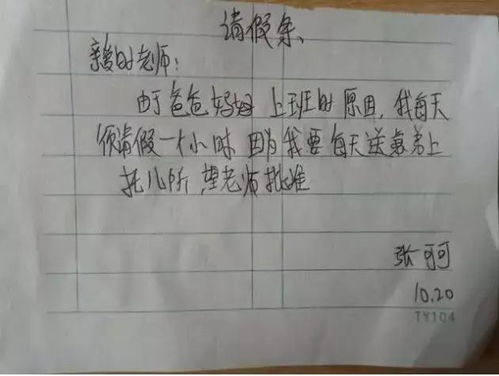 请假条
亲爱的老师:
由于爸爸妈妈上班的原因,我每天
须请假一小时 因为我要每天送弟弟上
托儿所,望老师批准
张可可
10.20
TY104